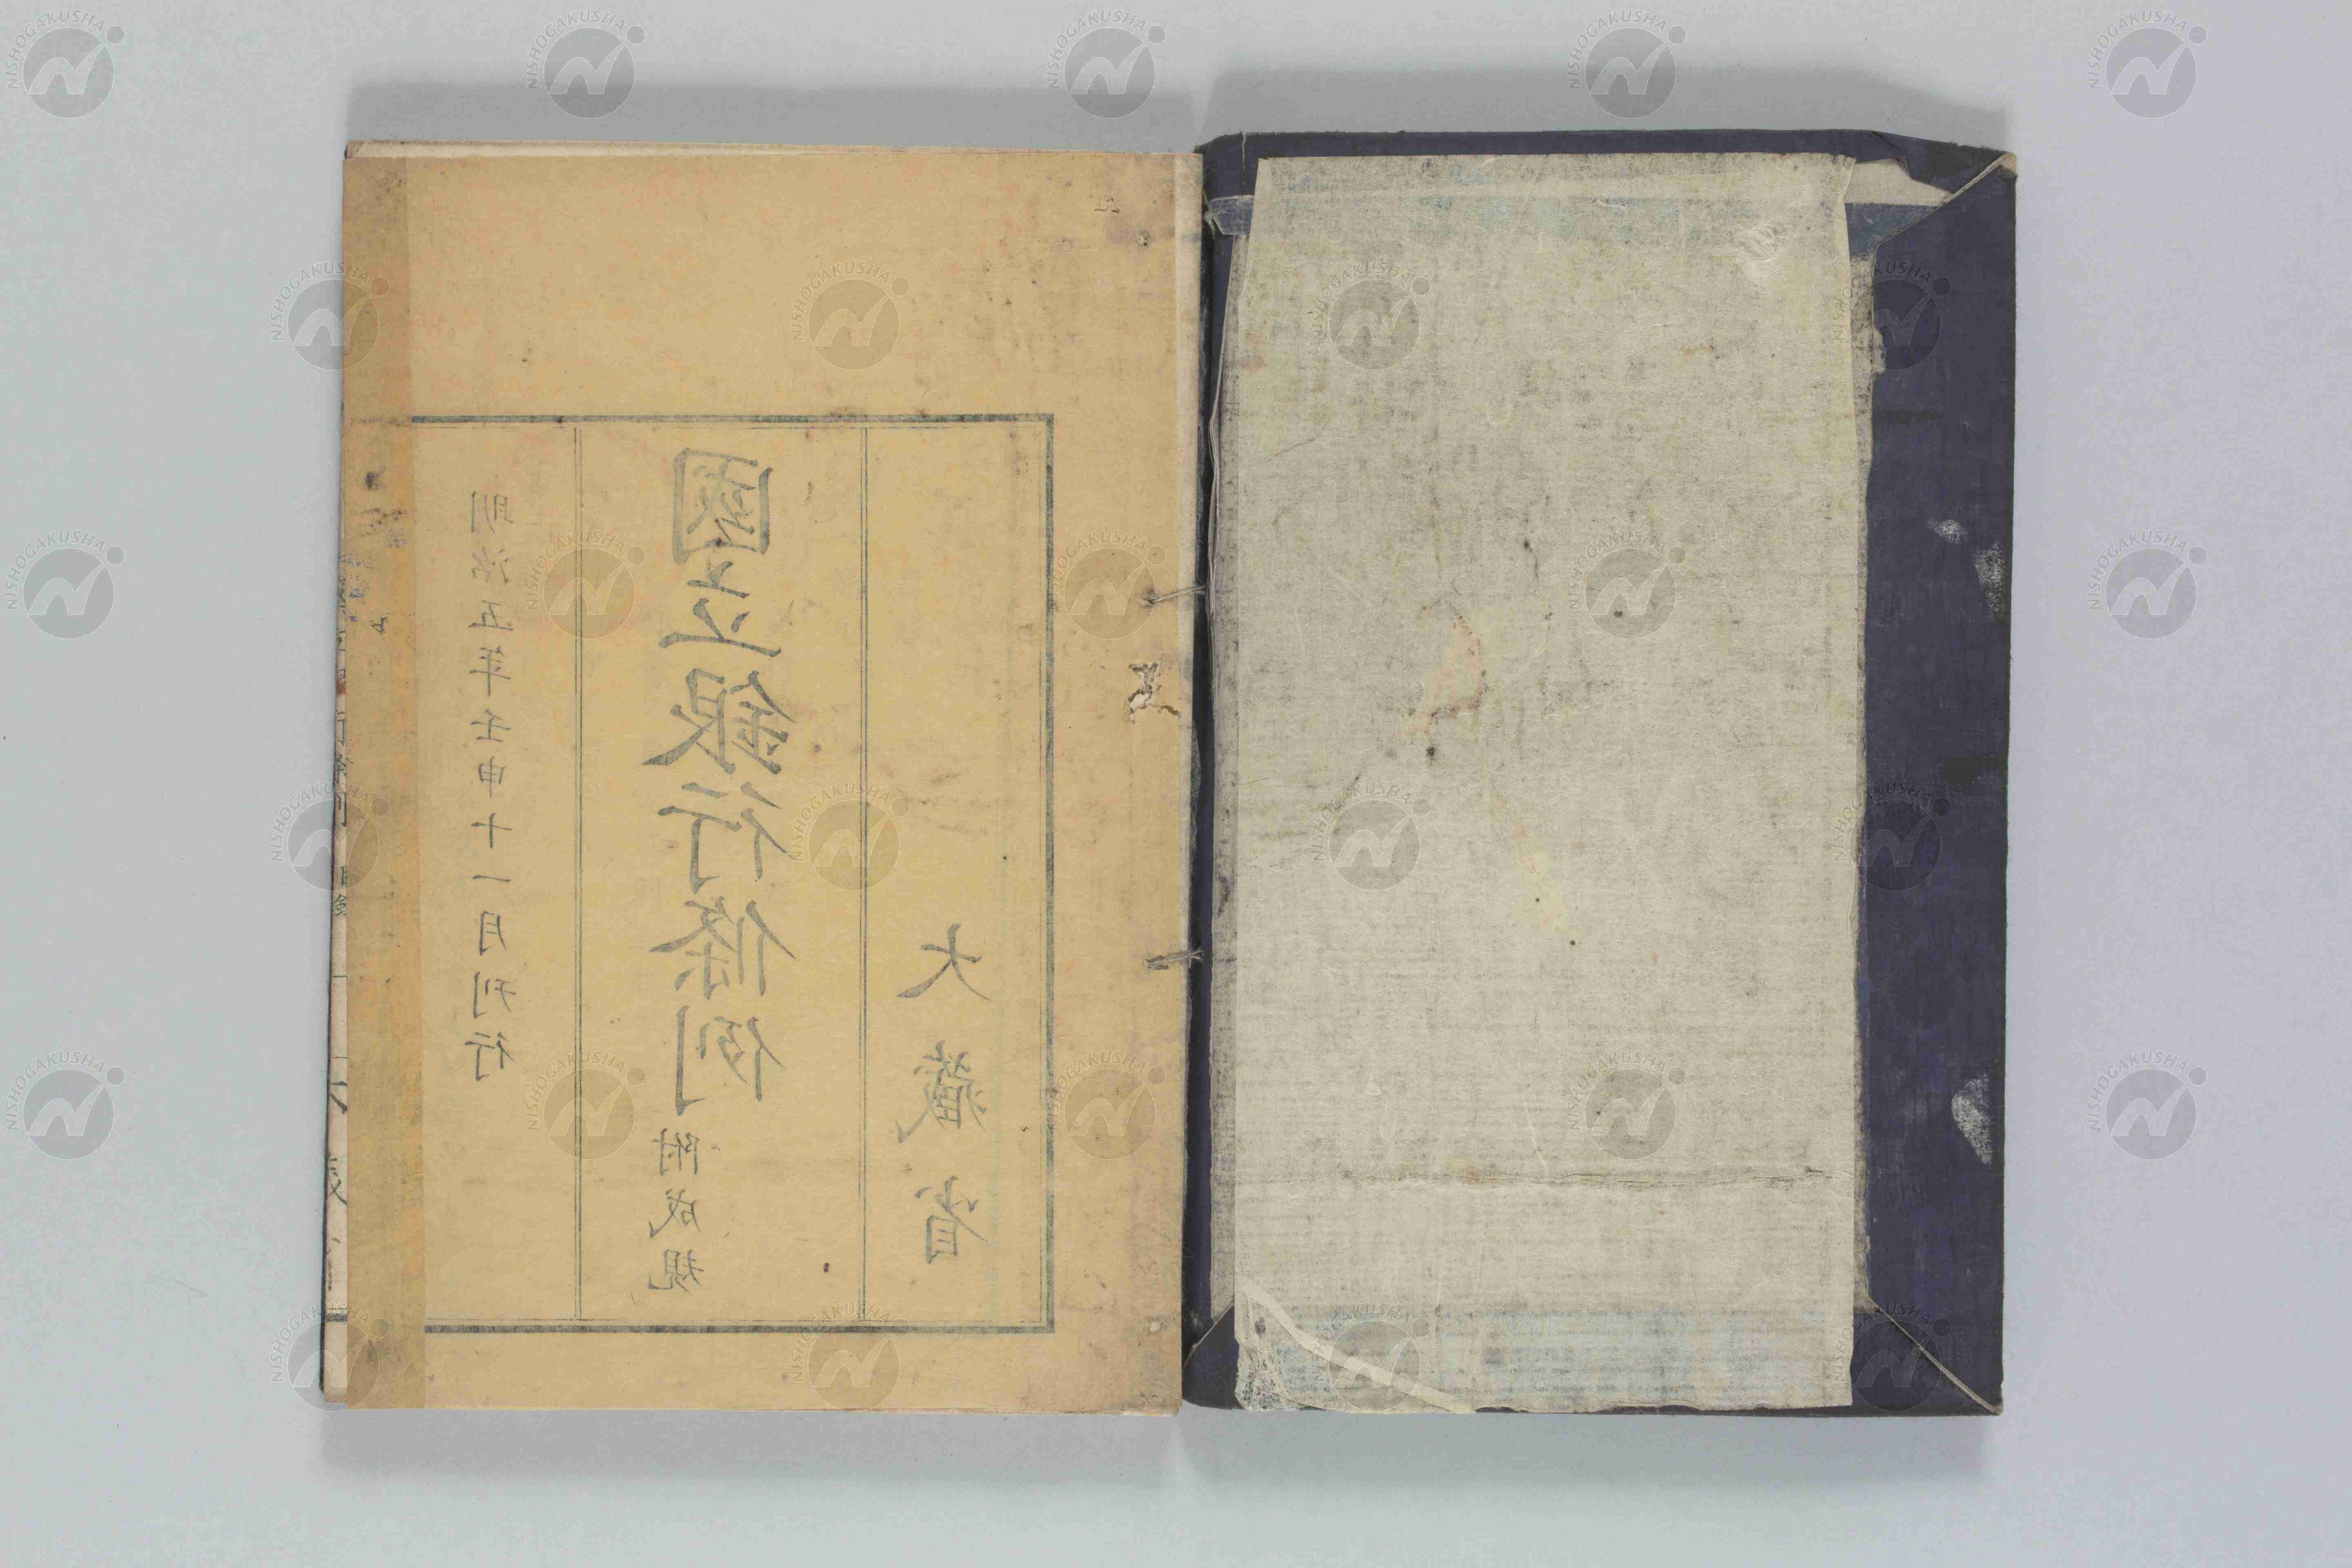 明治五年壬申十一月刊行
國立銀行條例附成規
大藏省
NISHOGAKUSHA